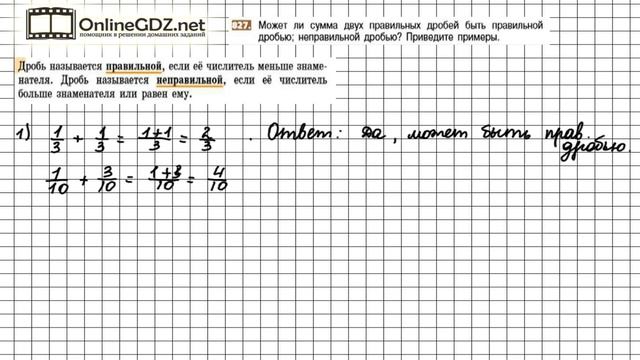 OnlineGDZ.net
помощник в решении домашних заданий
927. Может ли сумма двух правильных дробей быть правильной
дробью; неправильной дробью? Приведите примеры.
Дробь называется правильной, если её числитель меньше знаме-
нателя. Дробь называется неправильной, если её числитель
больше знаменателя или равен ему.
1) 1/3 + 1/3 = 1+1/3 = 2/3 . Ответ: да, может быть прав.
дробью.
1/10 + 3/10 = 1+3/10 = 4/10